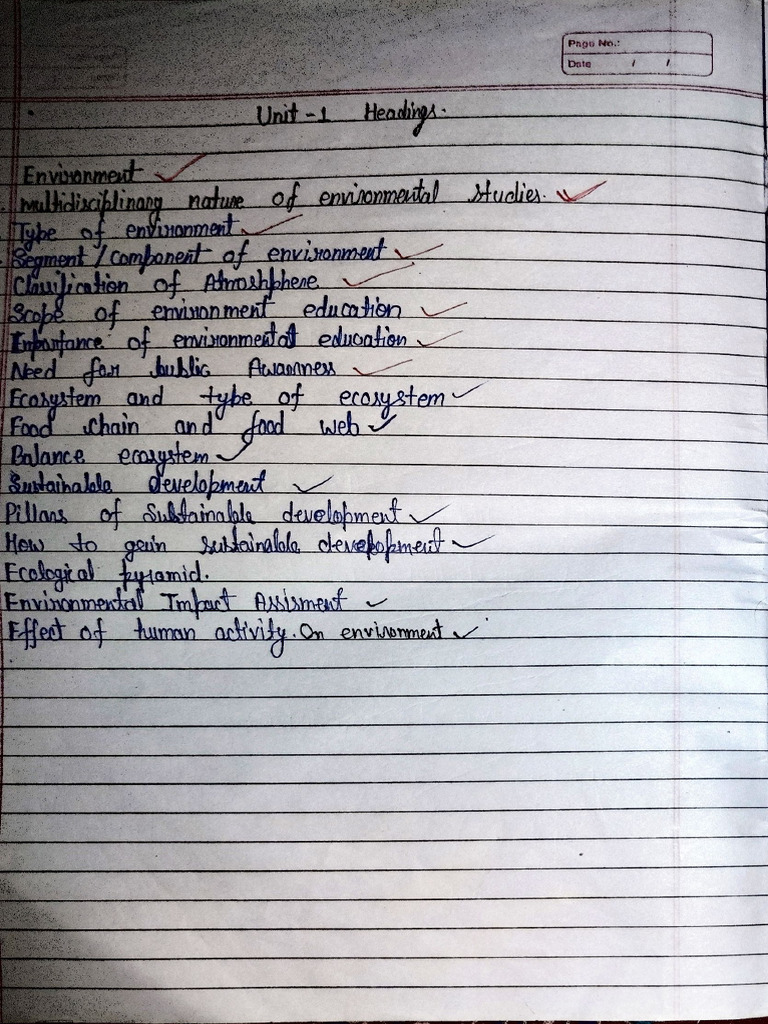 Page No.:
Date / /
Unit - 1 Headings.
Environment
Multidisciplinary nature of environmental studies.
Type of environment
Segment / component of environment
Classification of Atmoshphere
Scope of environment education
Importance of environmental education
Need for public Awarness
Ecosystem and type of ecosystem
Food chain and food web
Balance ecosystem
Sustainable development
Pillars of Sustainable development
How to gain sustainable development
Ecological pyramid.
Environmental Impact Assisment
Effect of human activity. On environment